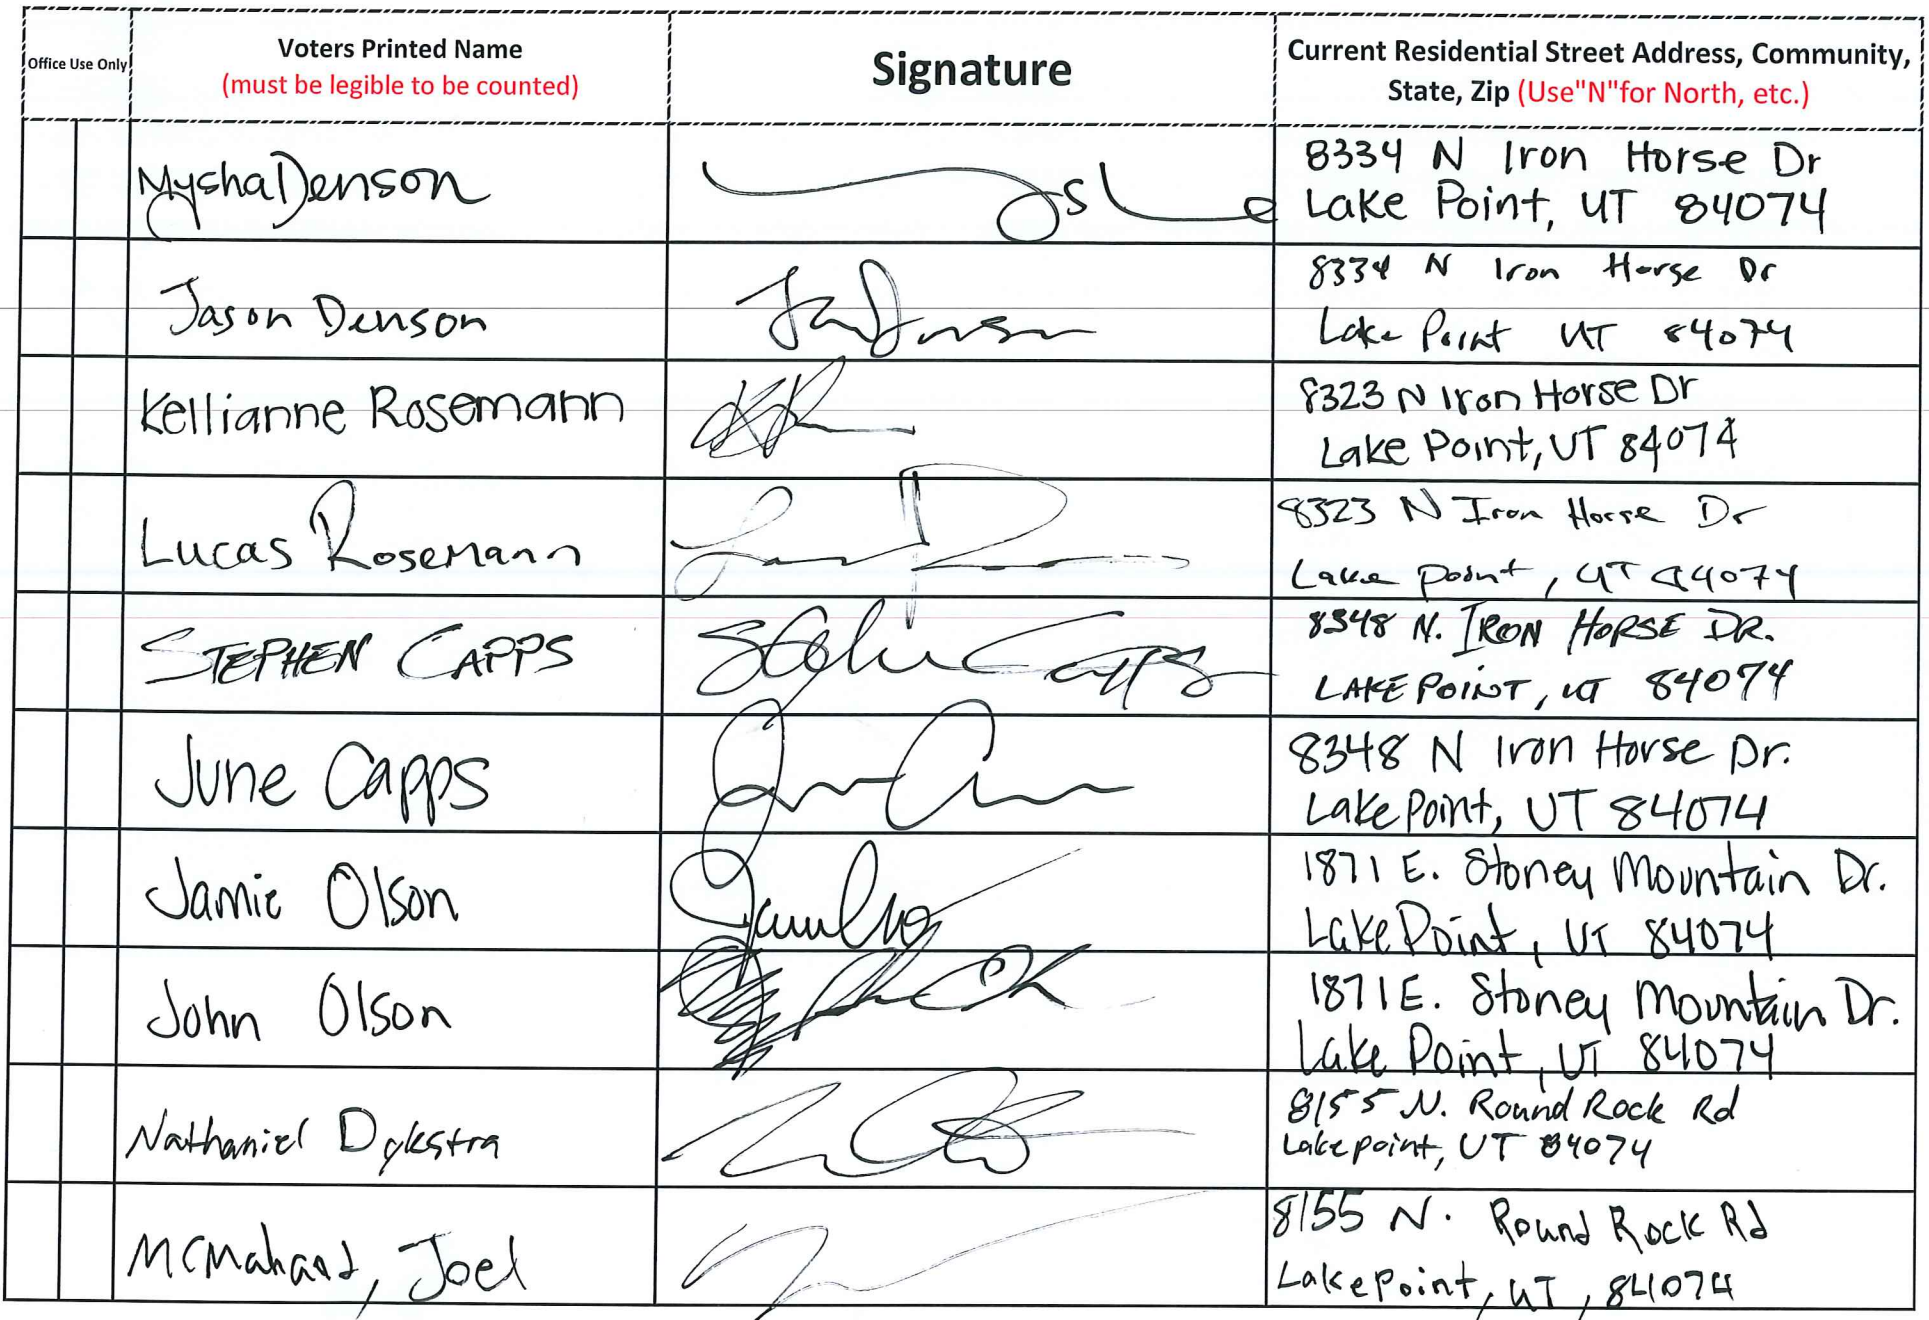 Office Use Only
Voters Printed Name
(must be legible to be counted)
Signature
Current Residential Street Address, Community,
State, Zip (Use"N"for North, etc.)
Mysha Denson
8334 N Iron Horse Dr
Lake Point, UT 84074
Jason Denson
8334 N Iron Horse Dr
Lake Point UT 84074
Kellianne Rosemann
8323 N Iron Horse Dr
Lake Point, UT 84074
Lucas Rosemann
8323 N Iron Horse Dr
Lake Point, UT 84074
STEPHEN CAPPS
Stephen Capps
8348 N. IRON HORSE DR.
LAKE POINT, UT 84074
June Capps
8348 N Iron Horse Dr.
Lake Point, UT 84074
Jamie Olson
1871 E. Stoney Mountain Dr.
Lake Point, UT 84074
John Olson
1871 E. Stoney Mountain Dr.
Lake Point, UT 84074
Nathaniel Dykstra
8155 N. Round Rock Rd
Lakepoint, UT 84074
Joel
8155 N. Round Rock Rd
Lakepoint, UT, 84074